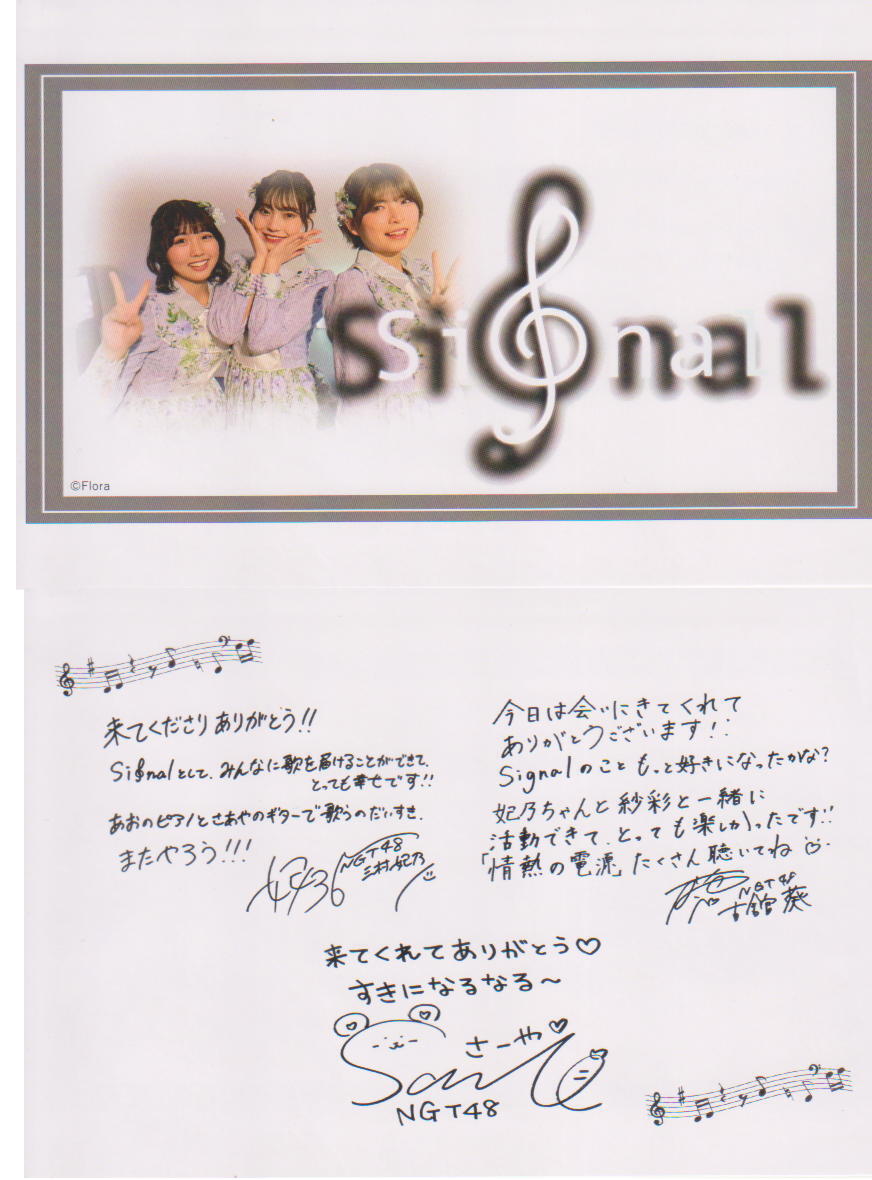 Signal
©Flora
来てくださり ありがとう!!
Signalとして、みんなに歌を届けることができて、
とっても幸せです!!
あおのピアノとさあやのギターで歌うのだいすき.
またやろう!!!
NGT48
三村妃乃
今日は会いにきてくれて
ありがとうございます!!
Signalのこと もっと好きになったかな?
妃乃ちゃんと紗彩と一緒に
活動できて、とっても楽しかったです!!
「情熱の電源」たくさん聴いてね
NGT48
古舘葵
来てくれてありがとう♡
すきになるなる～
さーや♡
NGT48